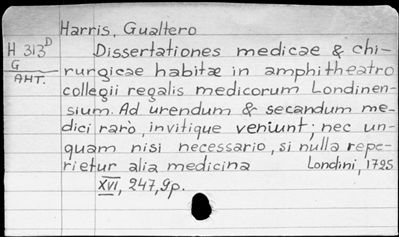 Harris, Gualtero
H 313D
G
AHT.
Dissertationes medicae & chi-
rurgicae habitæ in amphitheatro
collegii regalis medicorum Londinen-
sium. Ad urendum & secandum me-
dici raro, invitique veniunt; nec un-
quam nisi necessario, si nulla repe-
rietur alia medicina Londini, 1725
XVI, 247,9p.